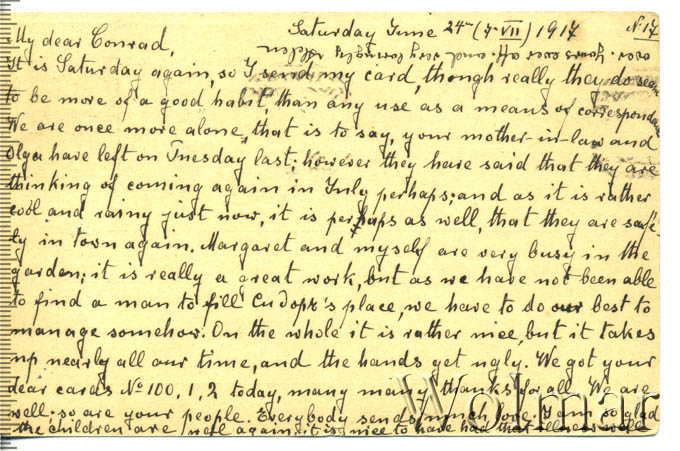 Saturday June 24th (7-VII) 1917 № 17
My dear Conrad,
It is Saturday again, so I send my card, though really they do seem
to be more of a good habit, than any use as a means of correspondance
We are once more alone, that is to say, your mother-in-law and
Olga have left on Tuesday last; however they have said that they are
thinking of coming again in July perhaps; and as it is rather
cool and rainy just now, it is perhaps as well, that they are safe-
ly in town again. Margaret and myself are very busy in the
garden; it is really a great work, but as we have not been able
to find a man to fill Сидоръ's place, we have to do our best to
manage somehow. On the whole it is rather nice, but it takes
up nearly all our time, and the hands get ugly. We got your
dear cards № 100, 1, 2 today, many many thanks for all. We are
well; so are your people. Everybody sends much love. I am so glad
the children are well again; it is nice to have had that illness
Wolmar